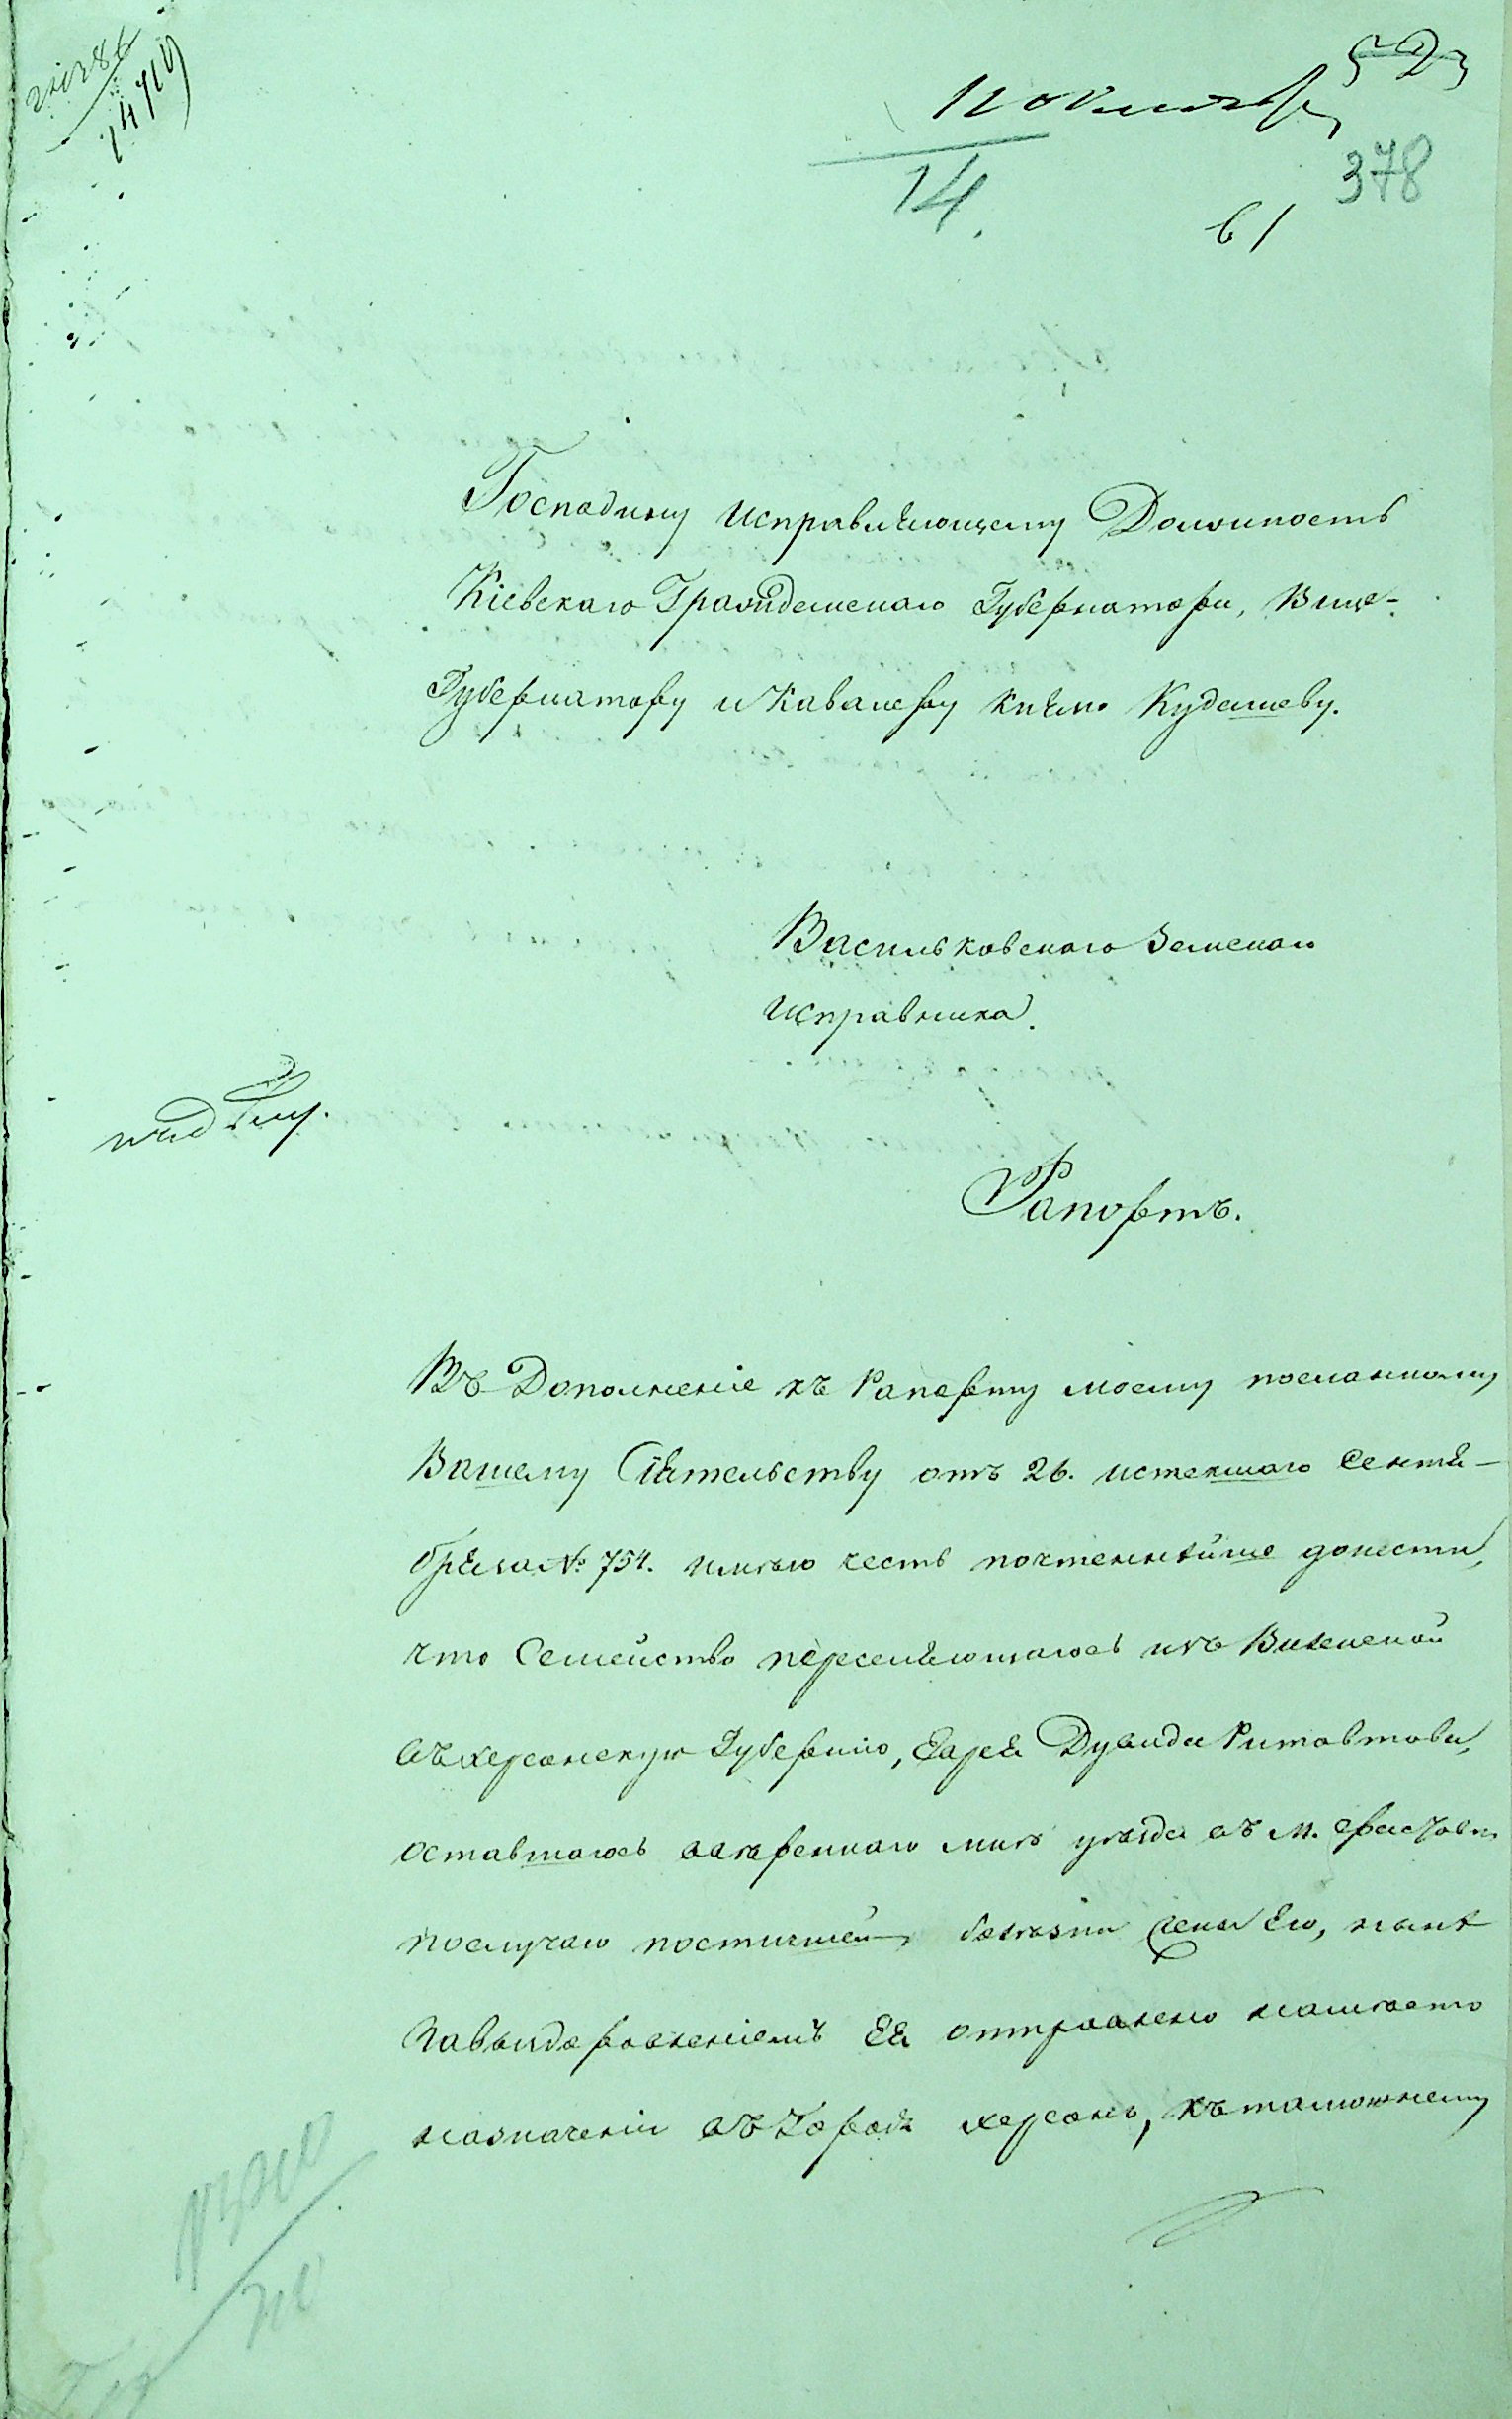 14719
14.
378
61
Господину исправляющему Должность
Кіевскаго Гражданскаго Губернатора, Вице-
Губернатору и Кавалеру князю Кудашеву.
Васильковскаго Земскаго
Исправника.
Рапортъ.
Въ Дополненіе къ Рапорту моему посланному
Вашему Сіятельству отъ 26. истекшаго Сентя-
бря за № 754. имѣю честь почтеннѣйше донести,
что Семейство переселяющагось изъ Виленской
въ херсонскую Губернію, Еврея Дувида Ритовтова,
оставшагось ввѣреннаго мнѣ уѣзда въ м. Фастовѣ
послучаю постигшей болѣзни жены Его, нынѣ
завыздоровленіемъ Ея отправлено намѣсто
назначенія въ Городъ херсонъ, къ тамошнему